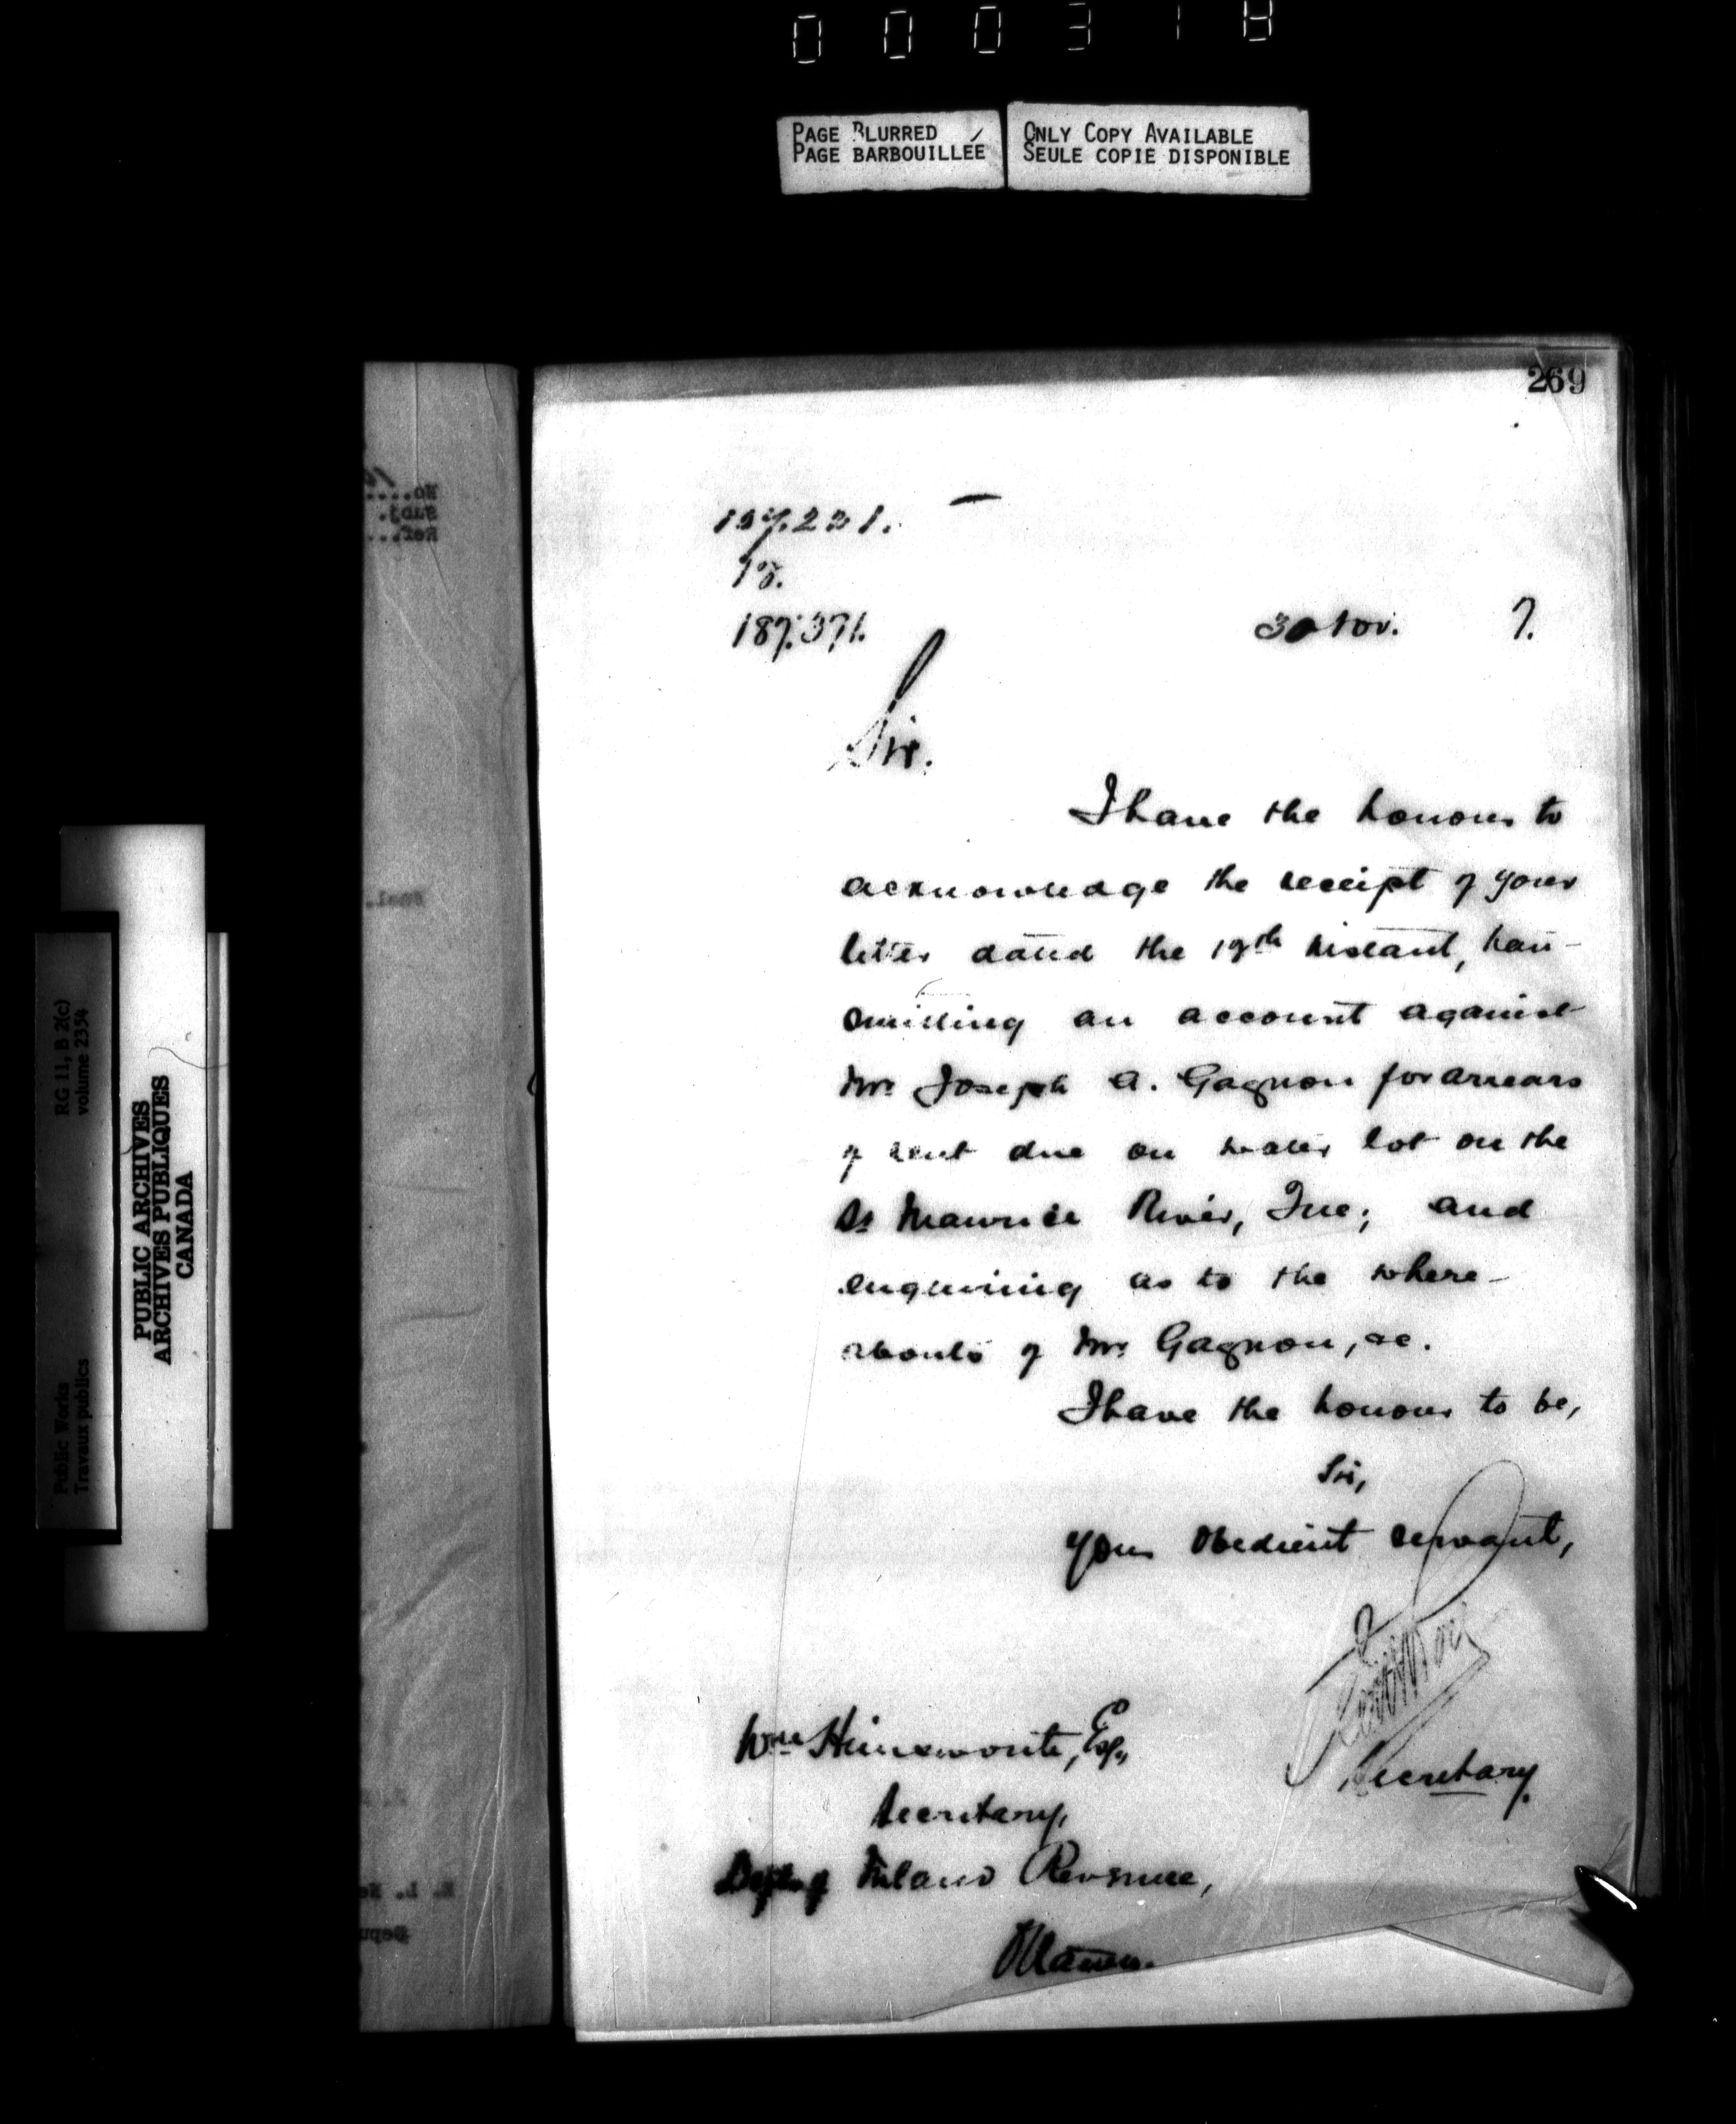 000318
PAGE BLURRED
PAGE BARBOUILLÉE
ONLY COPY AVAILABLE
SEULE COPIE DISPONIBLE
269
No....
Subj.
Ref...
187.371.
30 Nov. 7.
Sir.
I have the honour to
acknowledge the receipt of your
letter dated the instant, tran-
smitting an account against
Mr. Joseph A. Gagnon for arrears
of rent due on water lot on the
St Maurice River, Que; and
enquiring as to the where-
abouts of Mr. Gagnon, &c.
I have the honour to be,
Sir,
Your obedient servant,
Secretary.
Wm Himsworth, Esq.,
Secretary,
Dept. of Inland Revenue,
Ottawa.
RG 11, B 2(c)
volume 2354
Public Works
Travaux publics
PUBLIC ARCHIVES
ARCHIVES PUBLIQUES
CANADA